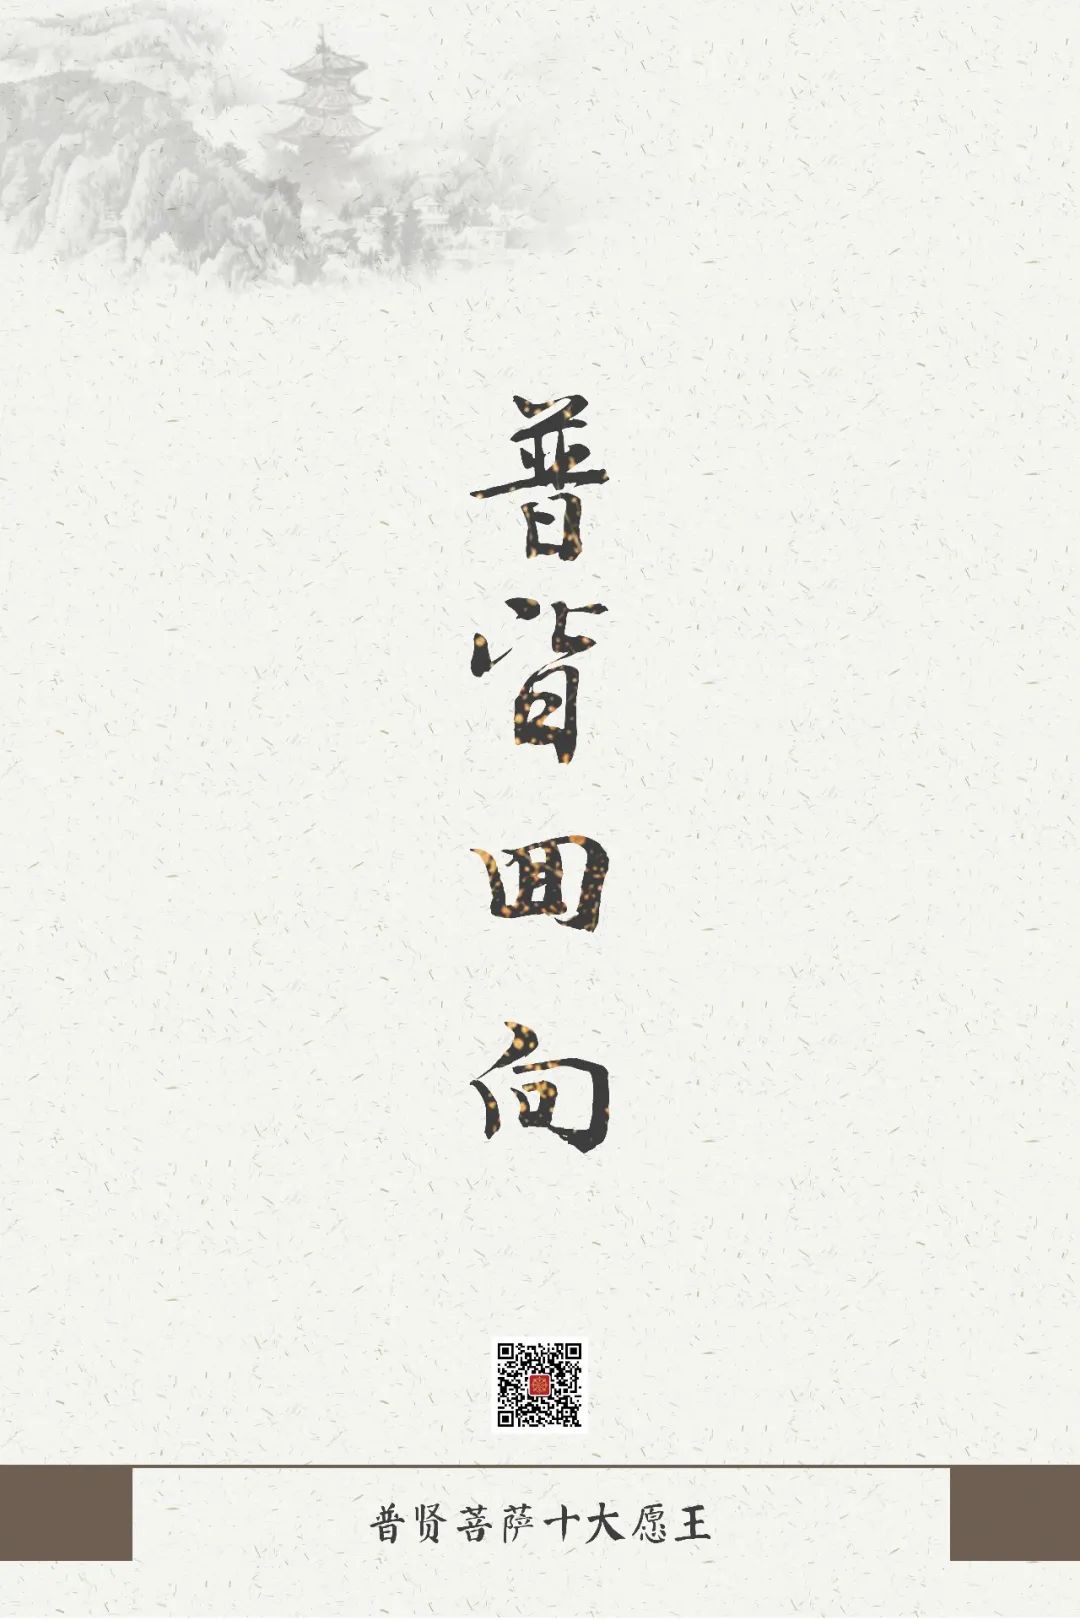 普皆回向
普贤菩萨十大愿王